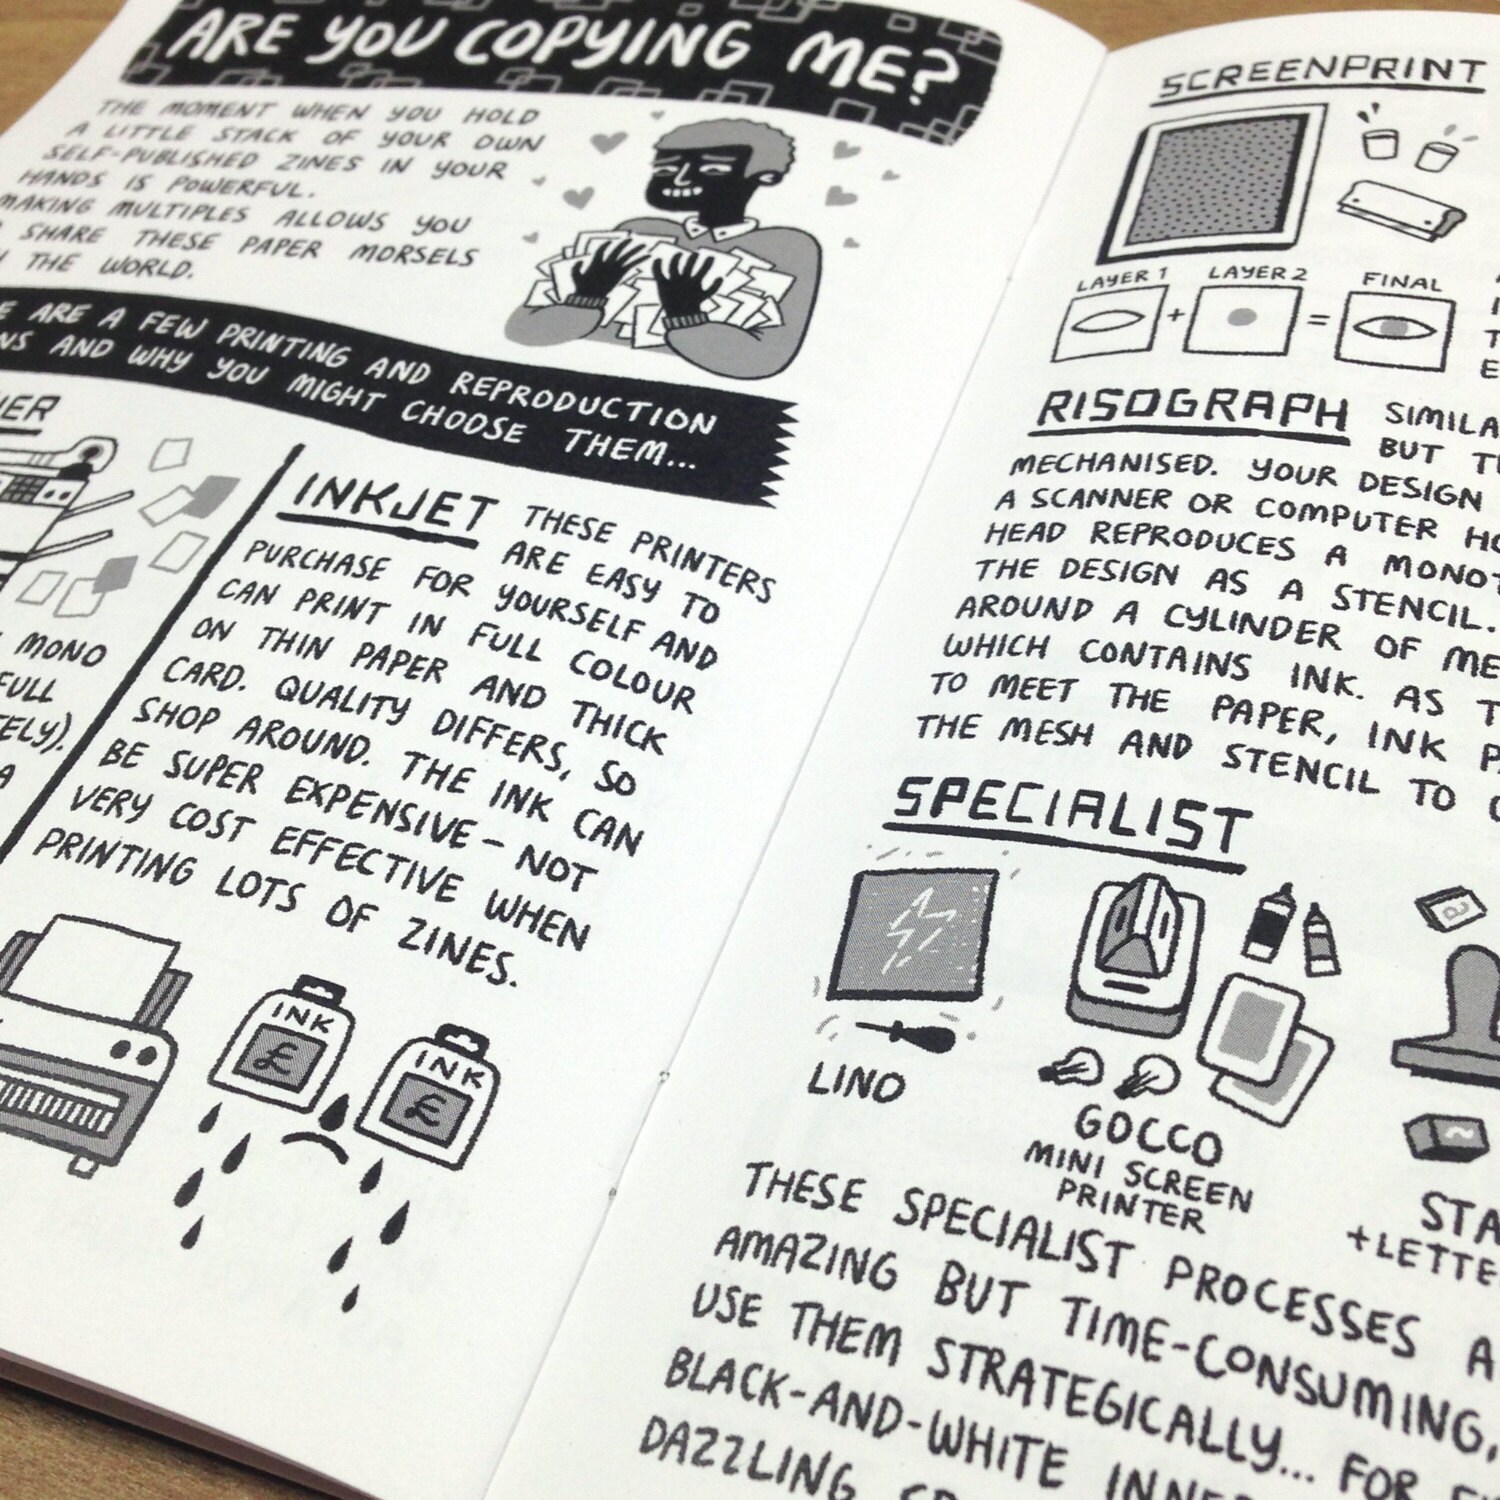 ARE YOU COPYING ME?
THE MOMENT WHEN YOU HOLD
A LITTLE STACK OF YOUR OWN
SELF-PUBLISHED ZINES IN YOUR
HANDS IS POWERFUL.
MAKING MULTIPLES ALLOWS YOU
SHARE THESE PAPER MORSELS
THE WORLD.
ARE A FEW PRINTING AND REPRODUCTION
AND WHY YOU MIGHT CHOOSE THEM...
MONO
FULL
INKJET THESE PRINTERS
ARE EASY TO
PURCHASE FOR YOURSELF AND
CAN PRINT IN FULL COLOUR
ON THIN PAPER AND THICK
CARD. QUALITY DIFFERS, SO
SHOP AROUND. THE INK CAN
BE SUPER EXPENSIVE – NOT
VERY COST EFFECTIVE WHEN
PRINTING LOTS OF ZINES.
INK
£
INK
£
SCREENPRINT
LAYER 1
LAYER 2
FINAL
+
=
RISOGRAPH
BUT
MECHANISED. YOUR DESIGN
A SCANNER OR COMPUTER
HEAD REPRODUCES A
THE DESIGN AS A STENCIL.
AROUND A CYLINDER OF
WHICH CONTAINS INK. AS
TO MEET THE PAPER, INK
THE MESH AND STENCIL TO
SPECIALIST
LINO
GOCCO
MINI SCREEN
PRINTER
THESE SPECIALIST PROCESSES
AMAZING BUT TIME-CONSUMING,
USE THEM STRATEGICALLY... FOR
BLACK-AND-WHITE
DAZZLING